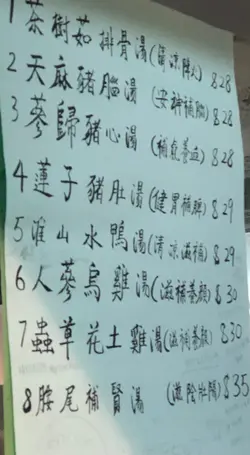 1 茶樹茹排骨湯(清凉降火) 8.28
2 天麻豬腦湯 (安神補腦) 8.28
3 蔘歸豬心湯 (補氣養血) 8.28
4 蓮子豬肚湯(健胃補脾) 8.29
5 淮山水鴨湯(清凉滋補) 8.29
6 人蔘烏雞湯(滋補養顏) 8.30
7 蟲草花土雞湯(滋補養顏) 8.30
8 胺尾補腎湯 (滋陰壯陽) 8.35